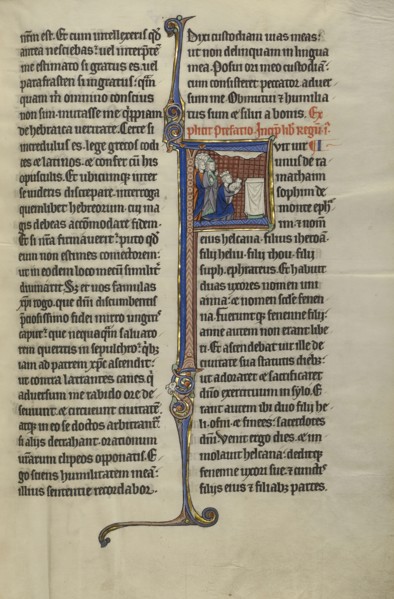 num est. Et cum intellexeris qd
antea nesciebas: vel interptem
me estimato si gratus es. vel
parafrasten si ingratus: qm̄
quam mͥ omnino conscius
non sim mutasse me qͥppiam
de hebraica veritate. Certe si
incredulus es. lege grecos codi
ces & latinos. & confer cū his
opusculis. Et ubicumqꝫ inter
se videris discrepare. interroga
quemlibet hebreorum: cui ma
gis debeas accōmodare fidem.
Et si nr̄a firmaverit: puto qd
eum non estimes coniectorem:
ut in eodem loco mecū similiter
divinarit. Sꝫ et vos famulas
xpi rogo. que dn̄i discumbentis
preciosissimo fidei mirro ungitis
caput: que nequaquam salvato
rem queritis in sepulchro: qͥbꝫ
iam ad patrem xpc ascendit:
ut contra latrantes canes. qͥ
adversum me rabido ore de
seviunt. & circueunt civitatē.
atqꝫ in eo se doctos arbitrantͬ
si aliis detrahant. orationum
vr̄arum clipeos opponatis. E
go sciens humilitatem meā:
illius sententie recordabor.
Dixi custodiam vias meas:
ut non delinquam in lingua
mea. Posui ori meo custodiā:
cum consisteret peccator adver
sum me. Obmutui & humilia
tus sum & silui a bonis. Ex
plicit Prefatio. Incip̄ lib regū iͫ.
Fuit vir
unus de ra
mathaim
sophim de
monte eph
raim. & nom̄
eius helcana. filius iheroā
filii heliu. filii thou. filii
suph. ephrateus. Et habuit
duas uxores. nomen uni
anna: & nomen scd̄e fenen
na. Fueruntqꝫ fenenne filii:
anne autem non erant libe
ri. Et ascendebat vir ille de
civitate sua statutis diebꝫ:
ut adoraret & sacrificaret
dn̄o exercituum in sylo. E
rant autem ibi duo filii he
li. ofni. & finees: sacerdotes
dn̄i. Venit ergo dies. & im
molavit helcana: deditqꝫ
fenenne uxori sue. & cunctis
filiis eius & filiabꝫ partes.